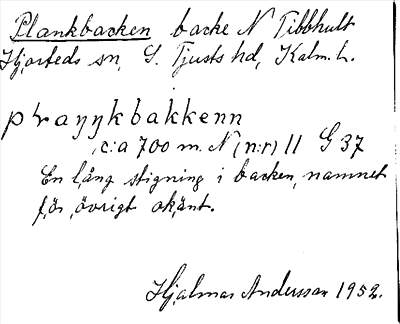 Plankbacken backe N Tibbhult
Hjorteds sn, S. Tjusts hd, Kalm. l.
plraŋŋkbakkenn
c:a 700 m. N (n:r) 11 G 37
En lång stigning i backen, namnet
för övrigt okänt.
Hjalmar Andersson 1952.